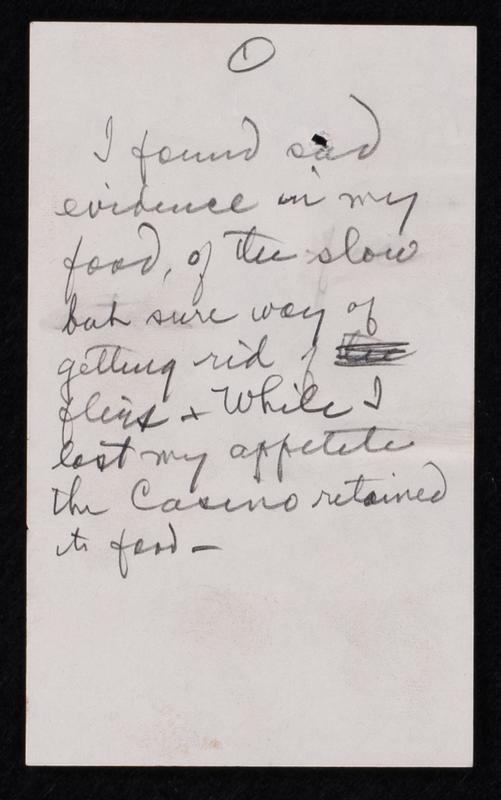 1
I found sad
evidence in my
food, of the slow
but sure way of
getting rid of the
flies + While I
lost my appetite
the Casino retained
its food –